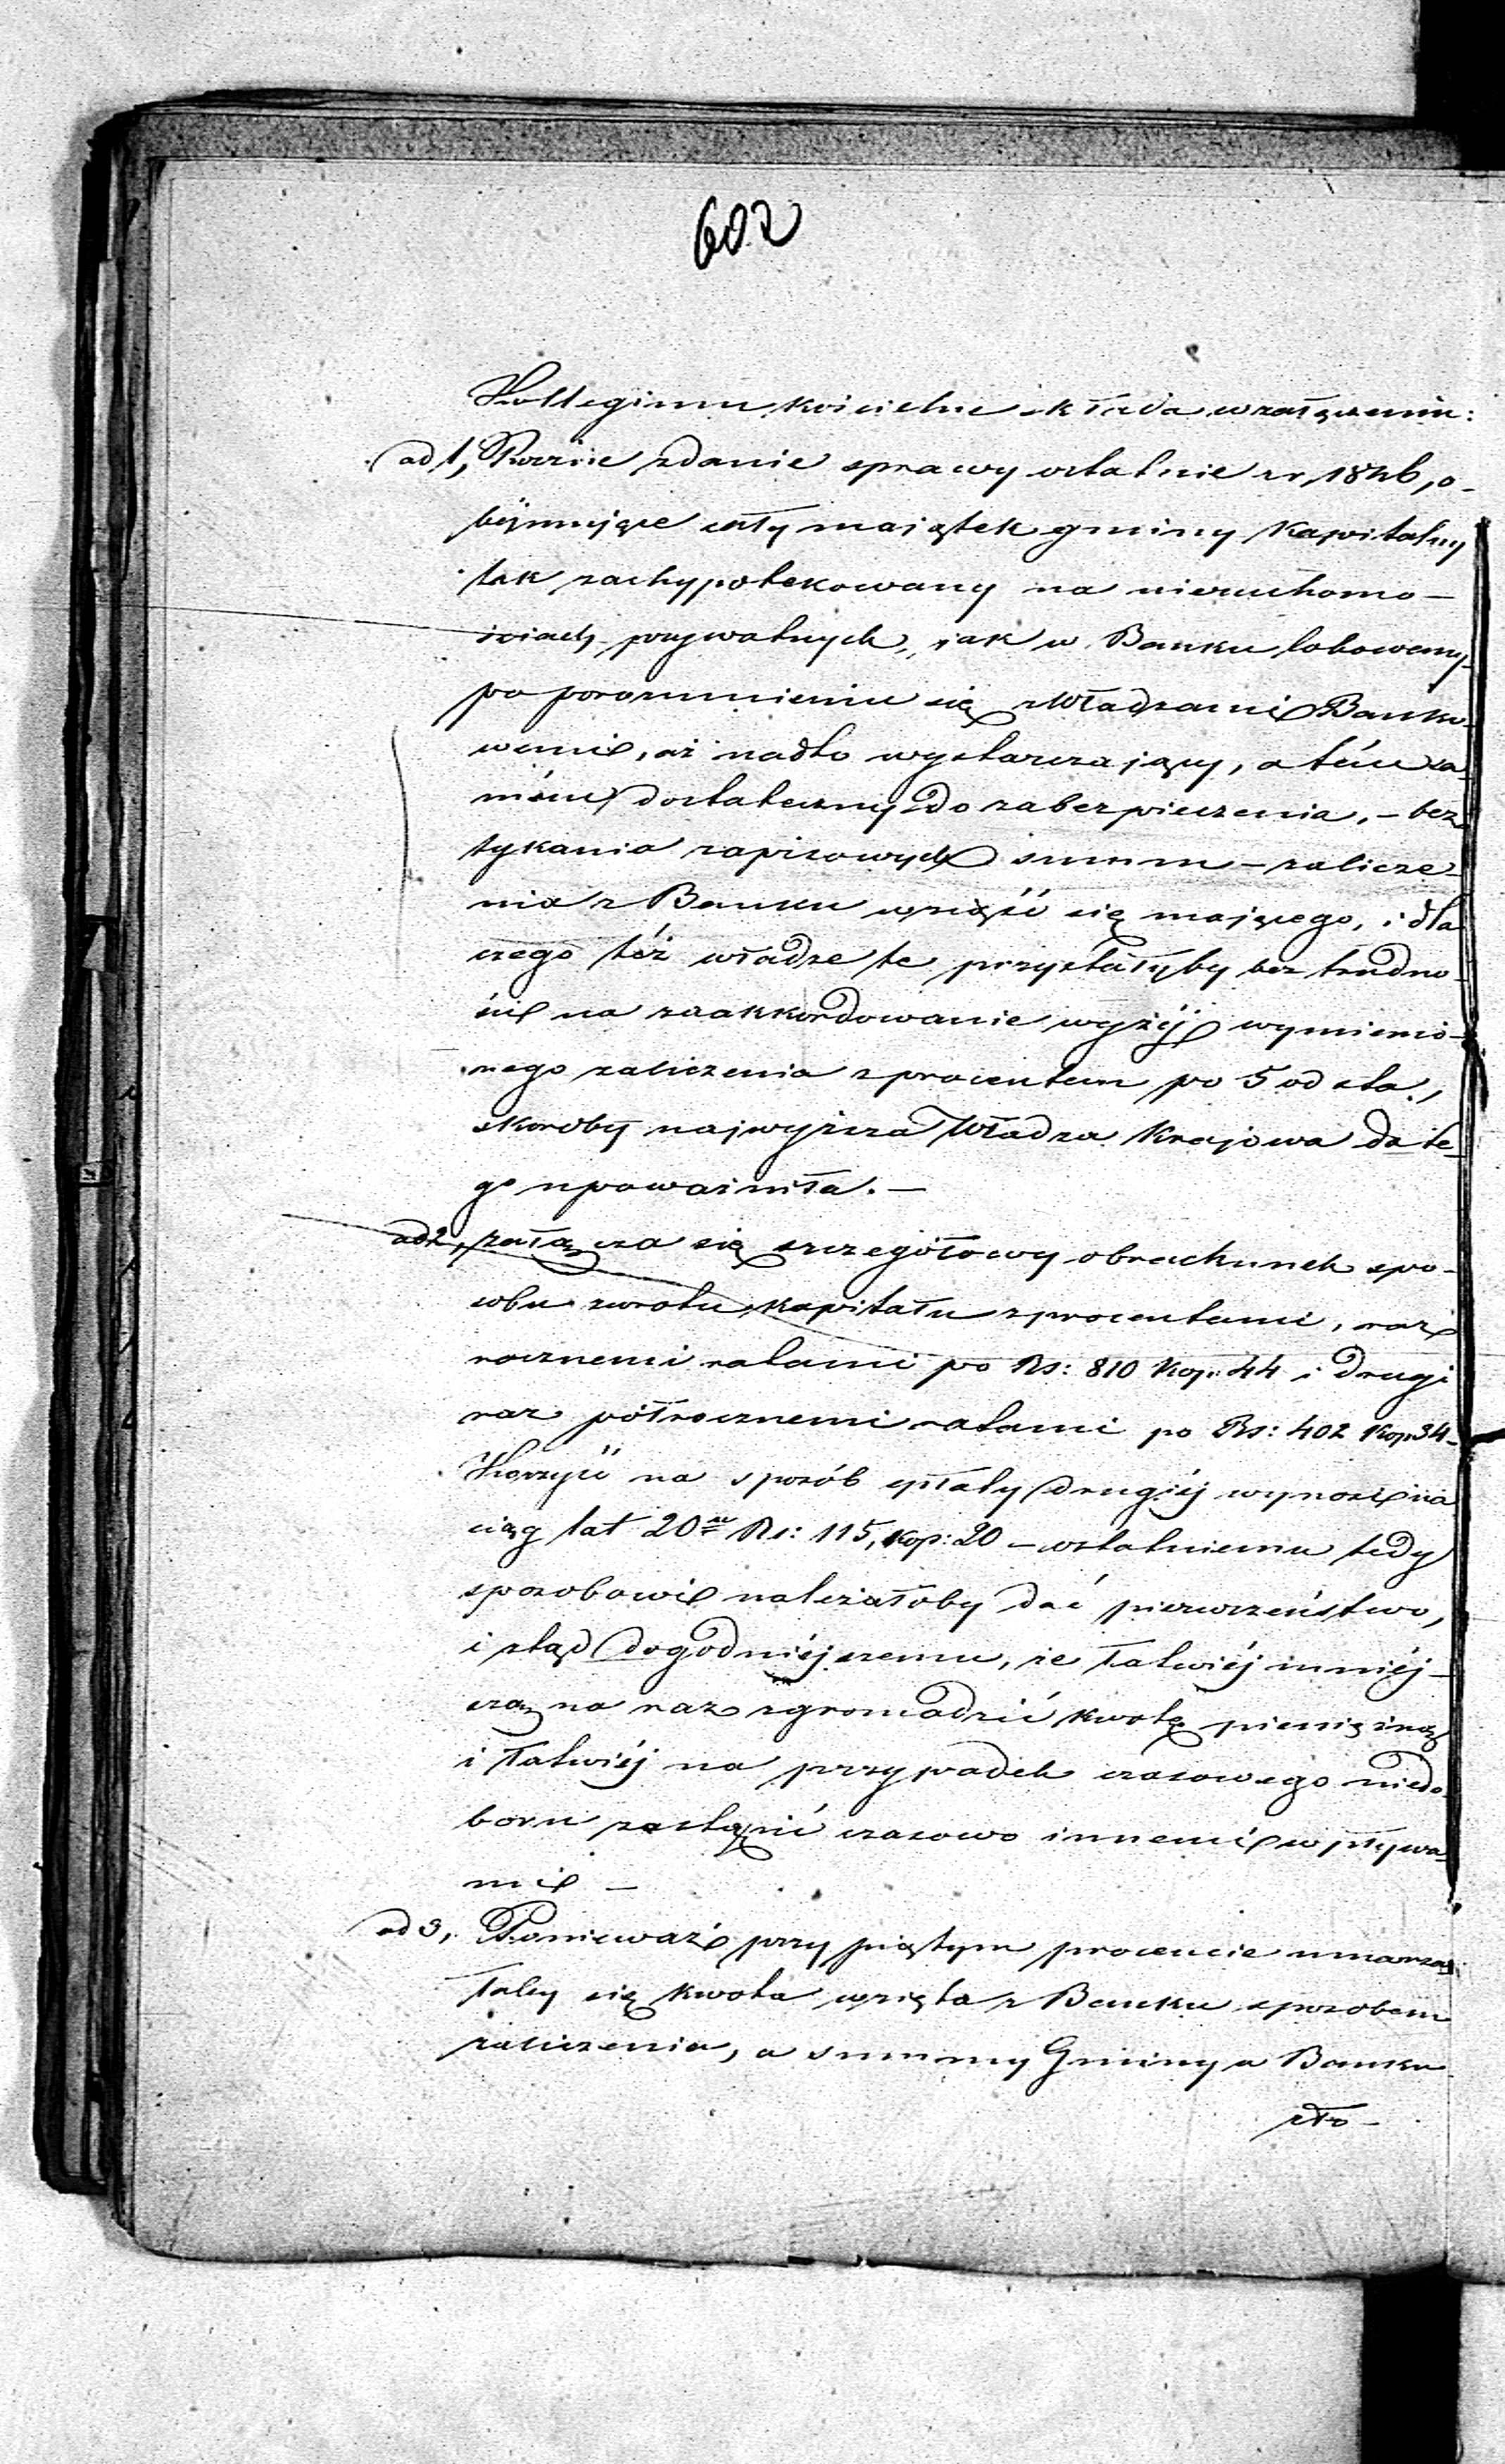 602
Kollegium kościelne składa w załączeniu:
ad 1, Roczne zdanie sprawy ostatnie z r. 1846, o-
bejmujące cały majątek gminy kapitalny
tak zachypotekowany na nieruchomo-
ściach prywatnych, jak w Banku lokowany
po porozumieniu się z Władzami Banko-
wemi, aż nadto wystarczający, a tém sa-
mém dostateczny do zabezpieczenia, – bez
tykania zapisowych summ – zalicze-
nia z Banku wziąść się mającego, i dla
czego téż władze te przystałyby bez trudno-
ści na zaakkordowanie wyżéj wymienio-
nego zaliczenia z procentem po 5 od sta,
skoroby najwyższa Władza Krajowa do te-
go upoważniła. –
ad 2, załącza się szczegółowy obrachunek spo-
sobu zwrotu kapitału z procentami, raz
rocznemi ratami po Rs: 810 Kop: 44 i drugi
raz półrocznemi ratami po Rs: 402 Kop: 34 –
Korzyść na sposób spłaty drugiéj wynosi na
ciąg lat 20 Rs: 115, Kop: 20 – ostatniemu tedy
sposobowi należałoby dać pierwszeństwo,
i stąd dogodniéjszemu, że łatwiéj mniéj-
szą na raz zgromadzić kwotę pieniężną
i łatwiéj na przypadek czasowego niedo-
boru zastąpić czasowo innemi wpływa-
mi –
ad 3, Ponieważ przy piątym procencie umarza-
łaby się kwota wzięta z Banku sposobem
zaliczenia, a summy Gminy u Banku
zło-